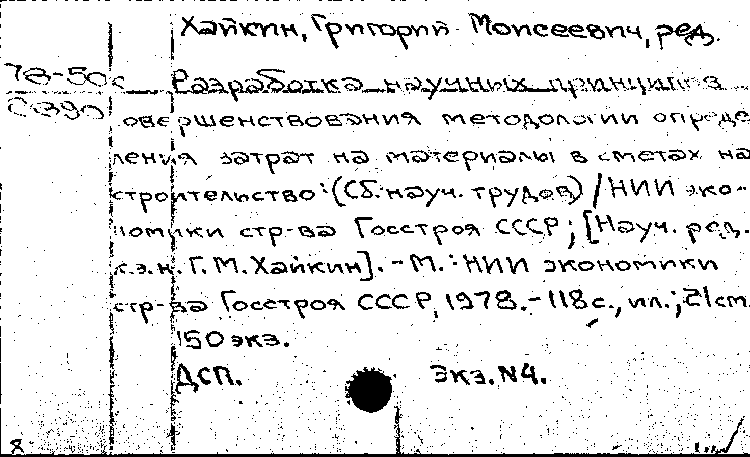 Хайкин, Григорий Моисеевич, ред.
78-50с Разработка научных принципов
С6390 совершенствования методологии опреде
ления затрат на материалы в сметах на
строительство: (Сб. науч. трудов) / НИИ эко-
номики стр-ва Госстроя СССР; [Науч. ред.
к.э.н. Г.М. Хайкин]. - М.: НИИ экономики
стр-ва Госстроя СССР, 1978. - 118 с., ил.; 21 cm.
150 экз.
ДСП. Экз. N4.
8